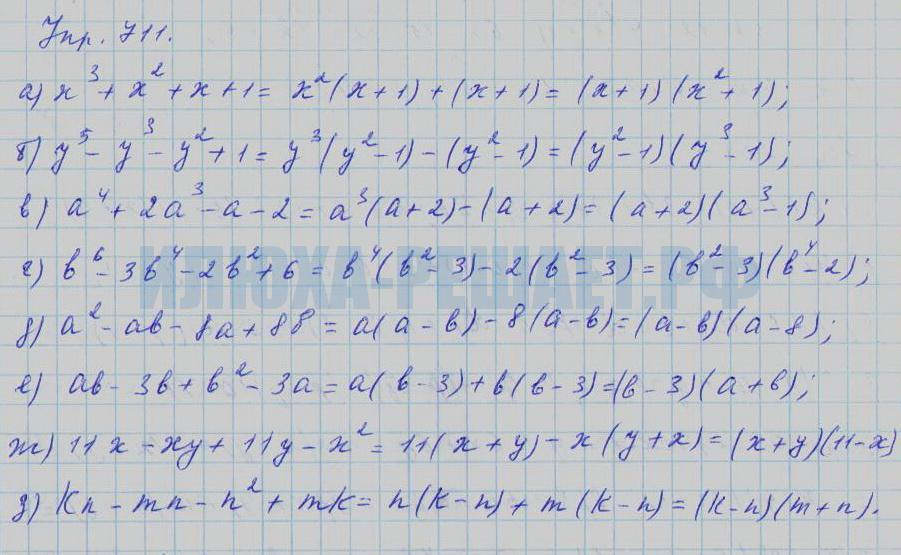 Упр. 711.
а) x³ + x² + x + 1 = x²(x + 1) + (x + 1) = (x + 1)(x² + 1);
б) y⁵ - y³ - y² + 1 = y³(y² - 1) - (y² - 1) = (y² - 1)(y³ - 1);
в) a⁴ + 2a³ - a - 2 = a³(a + 2) - (a + 2) = (a + 2)(a³ - 1);
г) b⁶ - 3b⁴ - 2b² + 6 = b⁴(b² - 3) - 2(b² - 3) = (b² - 3)(b⁴ - 2);
ИЛЮХА-РЕШАЕТ.РФ
д) a² - ab - 8a + 8b = a(a - b) - 8(a - b) = (a - b)(a - 8);
е) ab - 3b + b² - 3a = a(b - 3) + b(b - 3) = (b - 3)(a + b);
ж) 11x - xy + 11y - x² = 11(x + y) - x(y + x) = (x + y)(11 - x)
з) kn - mn - n² + mk = n(k - n) + m(k - n) = (k - n)(m + n).